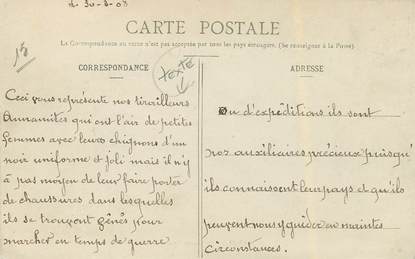 d. 30-3-08
CARTE POSTALE
La Correspondance au recto n'est pas acceptée par tous les pays étrangers. (Se renseigner à la Poste)
15
CORRESPONDANCE
TEXTE
ADRESSE
Ceci vous représente nos tirailleurs
Annamites qui ont l'air de petites
femmes avec leurs chignons d'un
noir uniforme et joli mais il n'y
à pas moyen de leur faire porter
de chaussures dans lesquelles
ils se trouvont gênés pour
marcher en temps de guerre
Ou d'expéditions ils sont
nos auxiliaires précieux puisqu'
ils connaissent leur pays et qu'ils
peuvent nous y guider en maintes
circonstances.